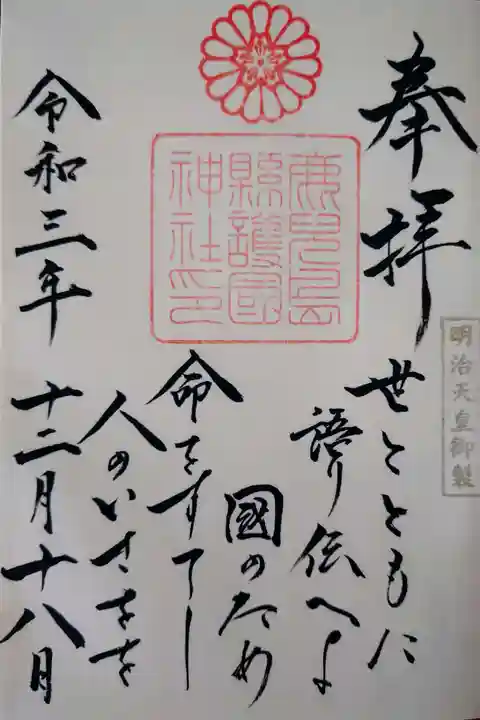 奉拝
明治天皇御製
鹿兒島
縣護國
神社印
世とともに
語り伝へよ
國のため
命をすてし
人のいさをを
令和三年 十二月十八日